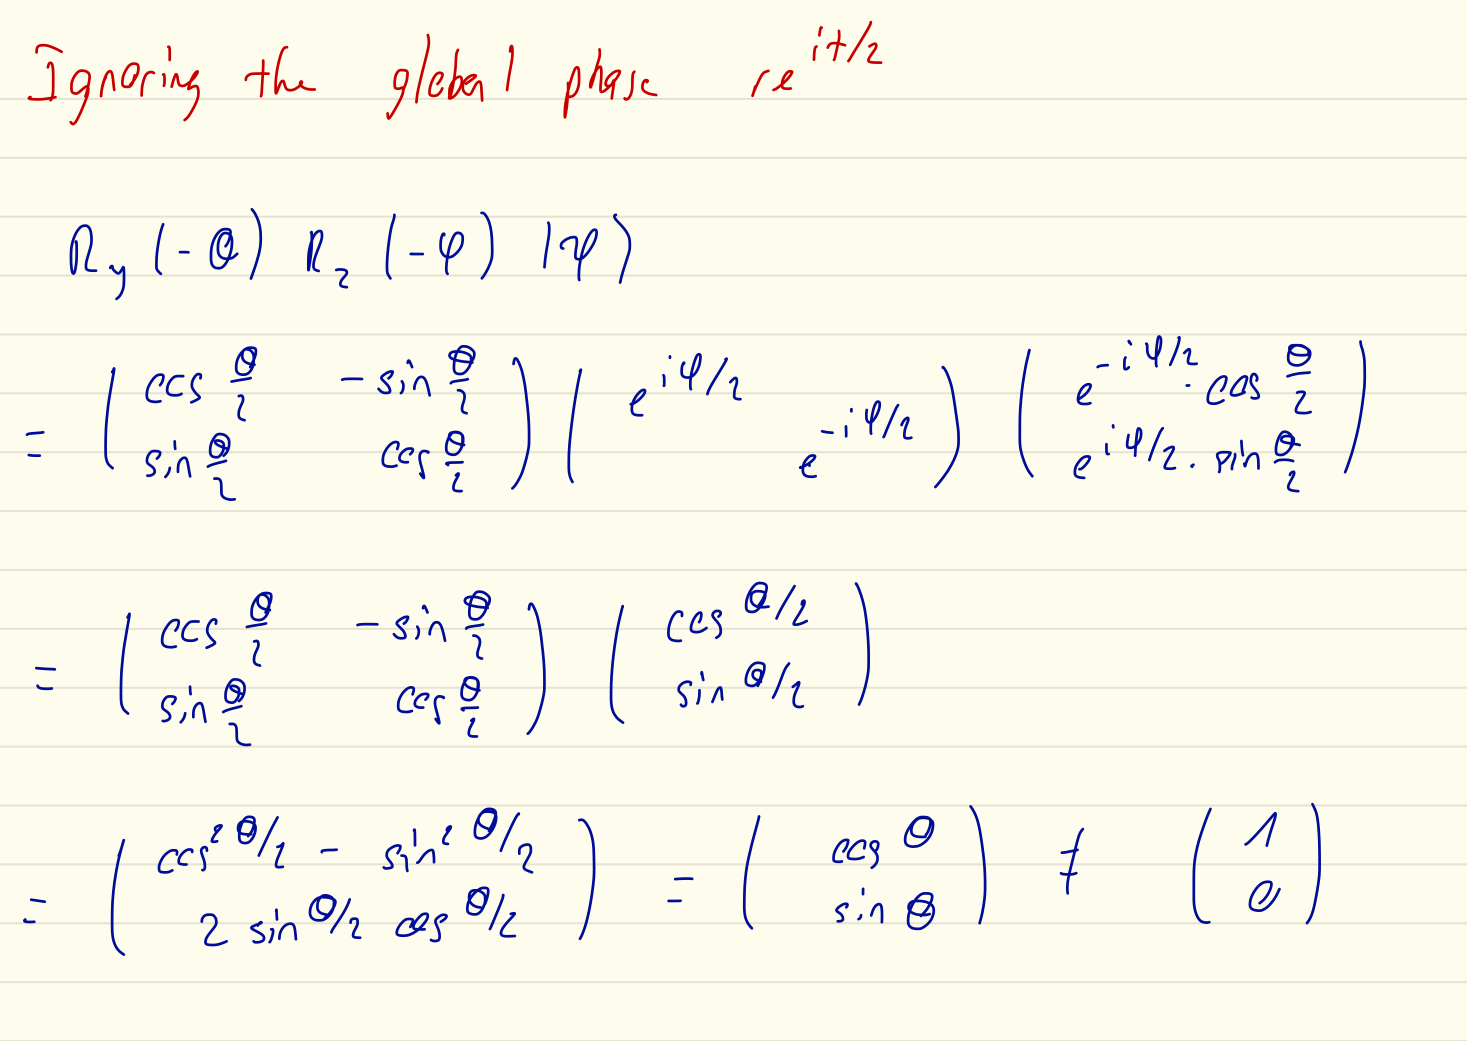 Ignoring the global phase re^{it/2}
R_y (-θ) R_z (-φ) |ψ⟩
= ( cos θ/2  -sin θ/2 ; sin θ/2  cos θ/2 ) ( e^{iφ/2}  ; e^{-iφ/2} ) ( e^{-iφ/2} · cos θ/2 ; e^{iφ/2} · sin θ/2 )
= ( cos θ/2  -sin θ/2 ; sin θ/2  cos θ/2 ) ( cos θ/2 ; sin θ/2 )
= ( cos² θ/2 - sin² θ/2 ; 2 sin θ/2 cos θ/2 ) = ( cos θ ; sin θ ) ≠ ( 1 ; 0 )